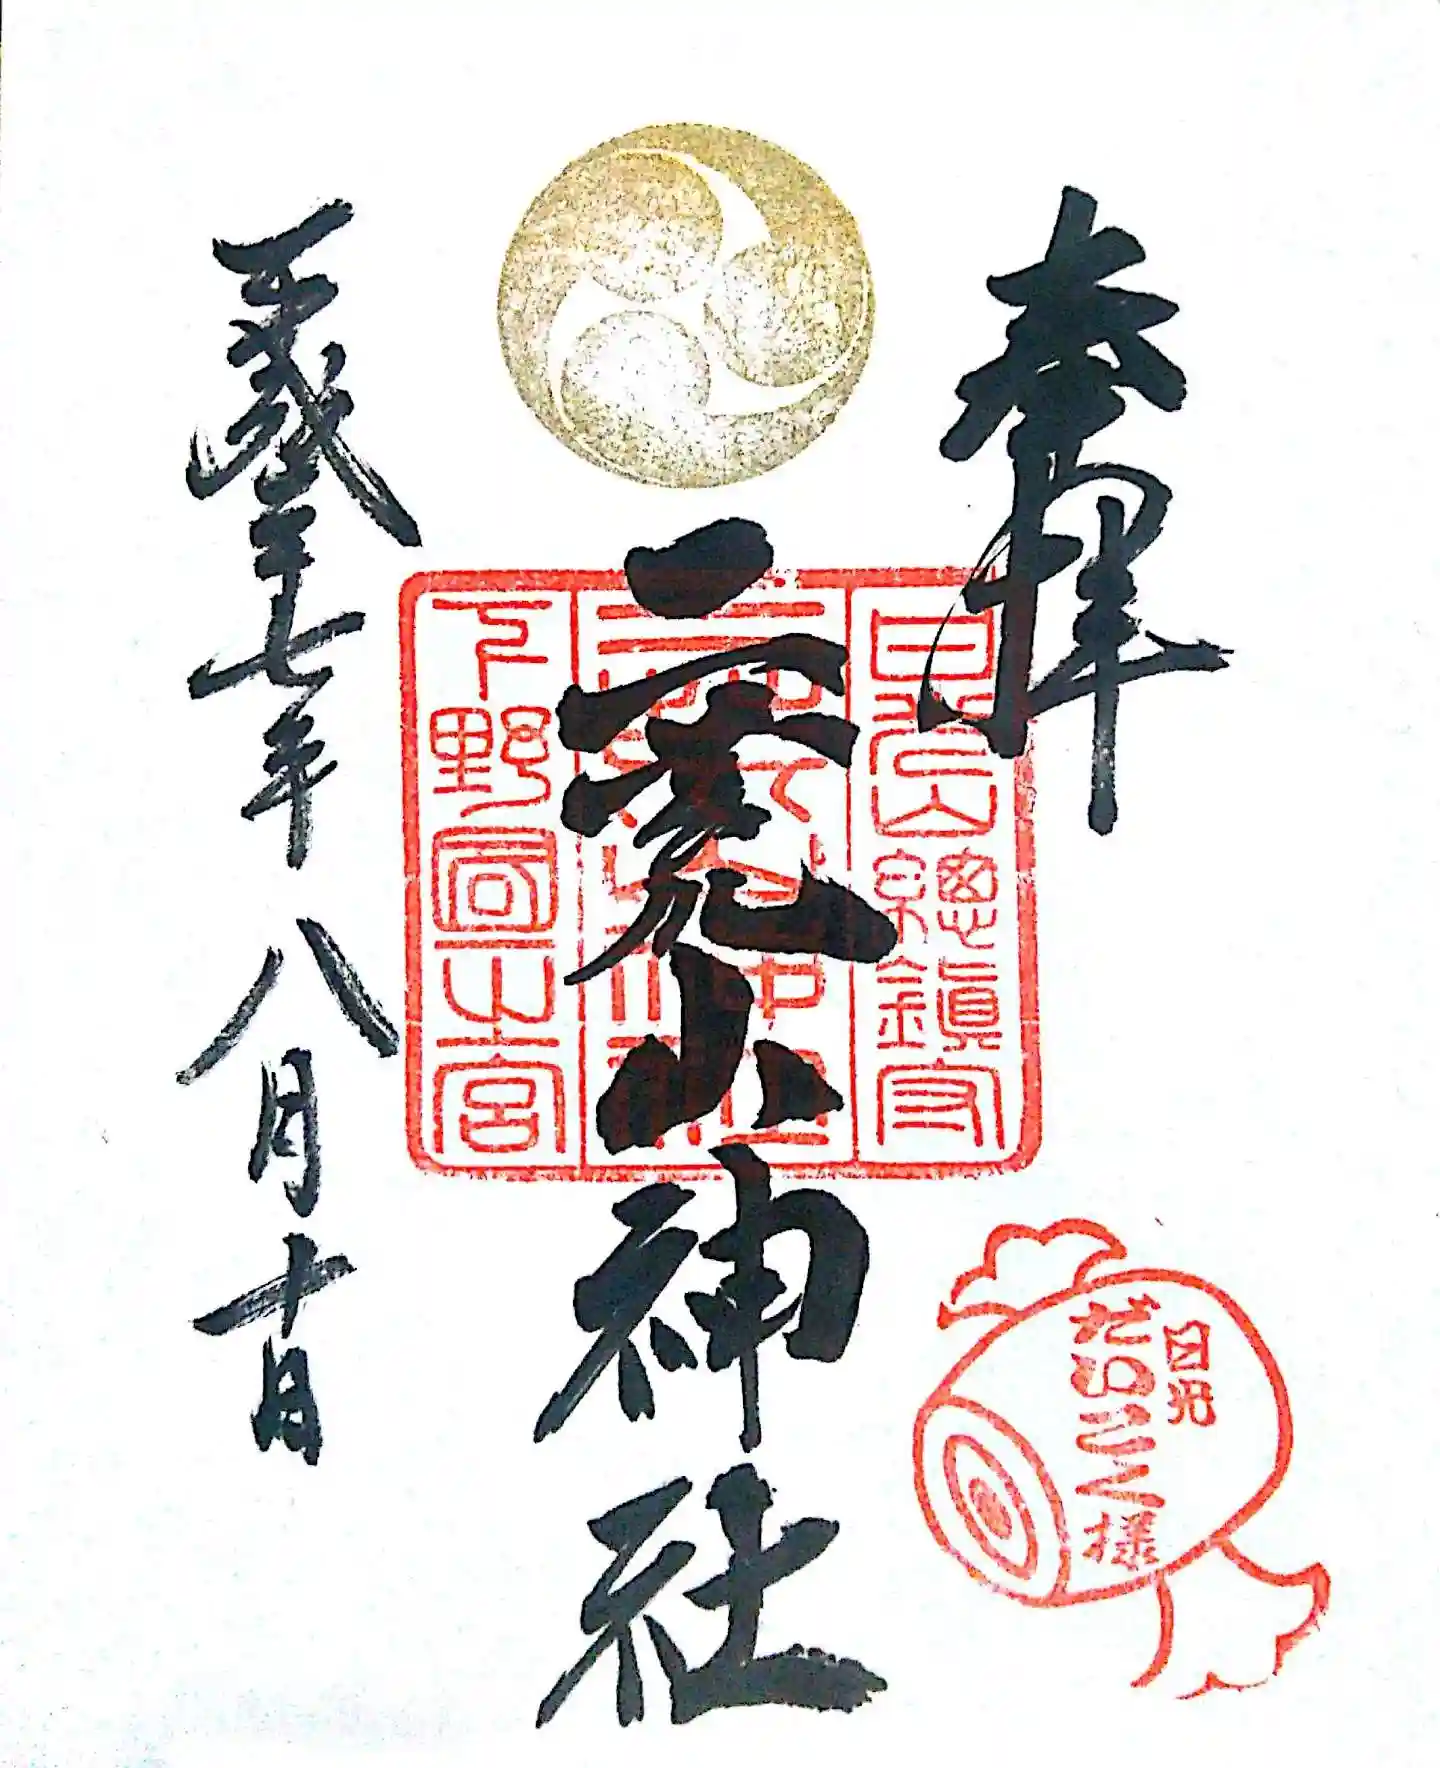 奉拝
日光山總鎮守
下野國一之宮
二荒山神社
平成二十七年八月十日
日光
だいこく様